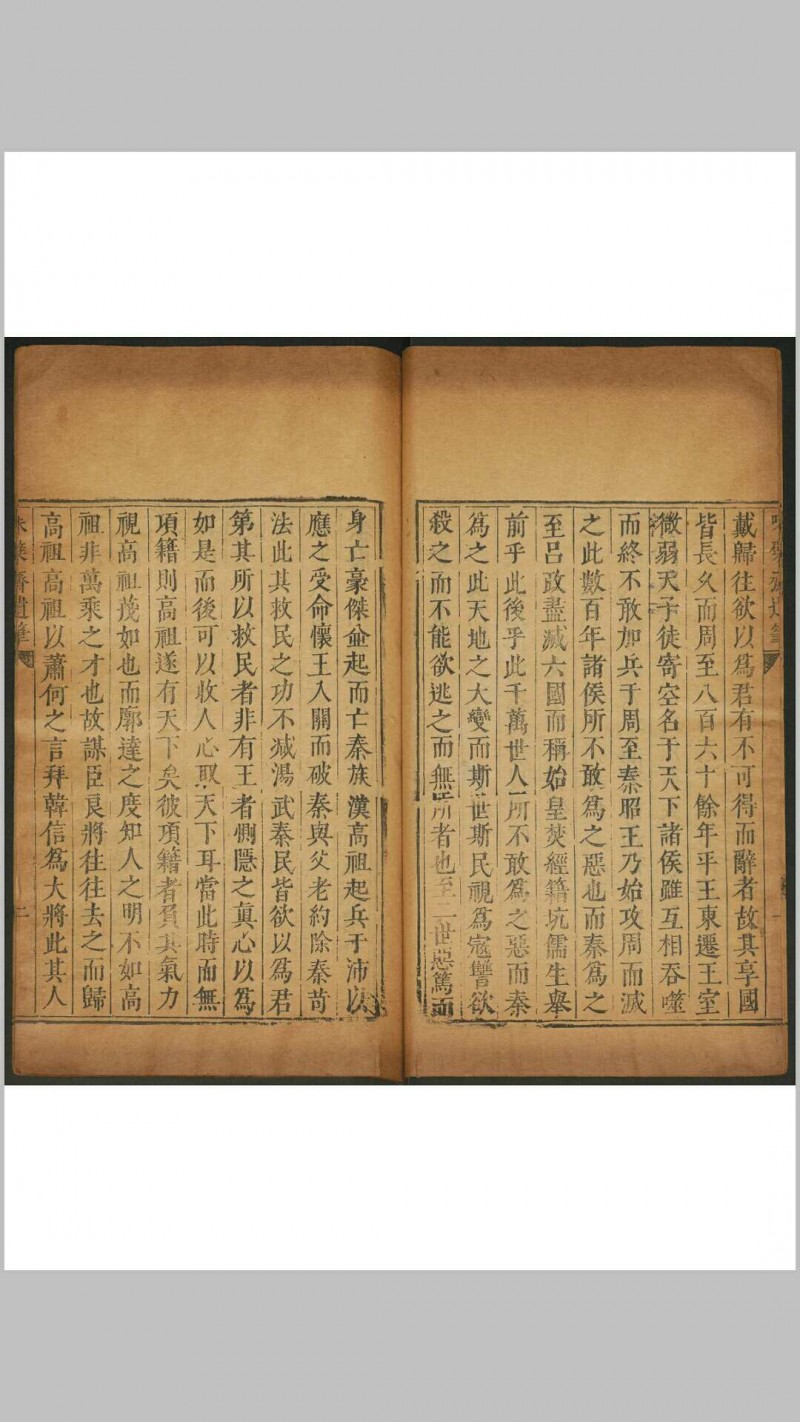 戴歸往欲以爲君有不可得而辭者故其享國
皆長久而周至八百六十餘年平王東遷王室
微弱天子徒寄空名于天下諸侯雖互相吞噬
而終不敢加兵于周至秦昭王乃始攻周而滅
之此數百年諸侯所不敢爲之惡也而秦爲之
至呂政盡滅六國而稱始皇焚經籍坑儒生舉
前乎此後乎此千萬世人所不敢爲之惡而秦
爲之此天地之大變而斯世斯民視爲寇讐欲
殺之而不能欲逃之而無所者也至二世惡篤而
身亡豪傑並起而亡秦族漢高祖起兵于沛以
應之受命懷王入關而破秦與父老約除秦苛
法此其救民之功不減湯武秦民皆欲以爲君
第其所以救民者非有王者惻隱之眞心以爲
如是而後可以收人心取天下耳當此時而無
項籍則高祖遂有天下矣彼項籍者負其氣力
視高祖蔑如也而廓達之度知人之明不如高
祖非萬乘之才也故謀臣良將往往去之而歸
高祖高祖以蕭何之言拜韓信爲大將此其人
齋遺筆
二